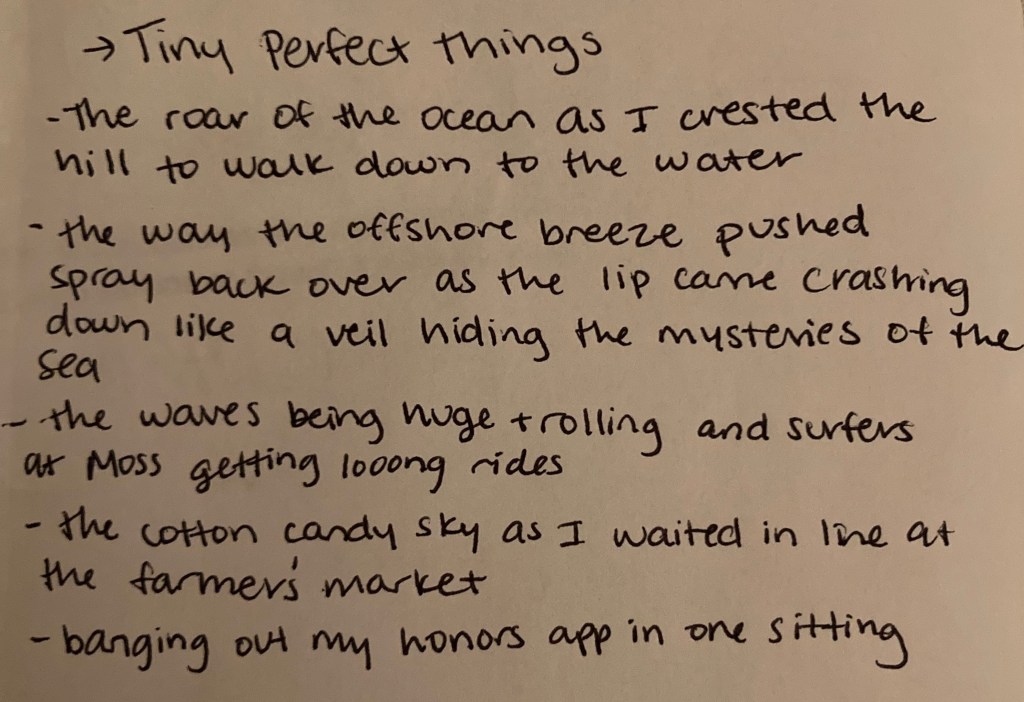 → Tiny Perfect things
- The roar of the ocean as I crested the
hill to walk down to the water
- the way the offshore breeze pushed
spray back over as the lip came crashing
down like a veil hiding the mysteries of the
sea
- the waves being huge + rolling and surfers
at Moss getting looong rides
- the cotton candy sky as I waited in line at
the farmer's market
- banging out my honors app in one sitting